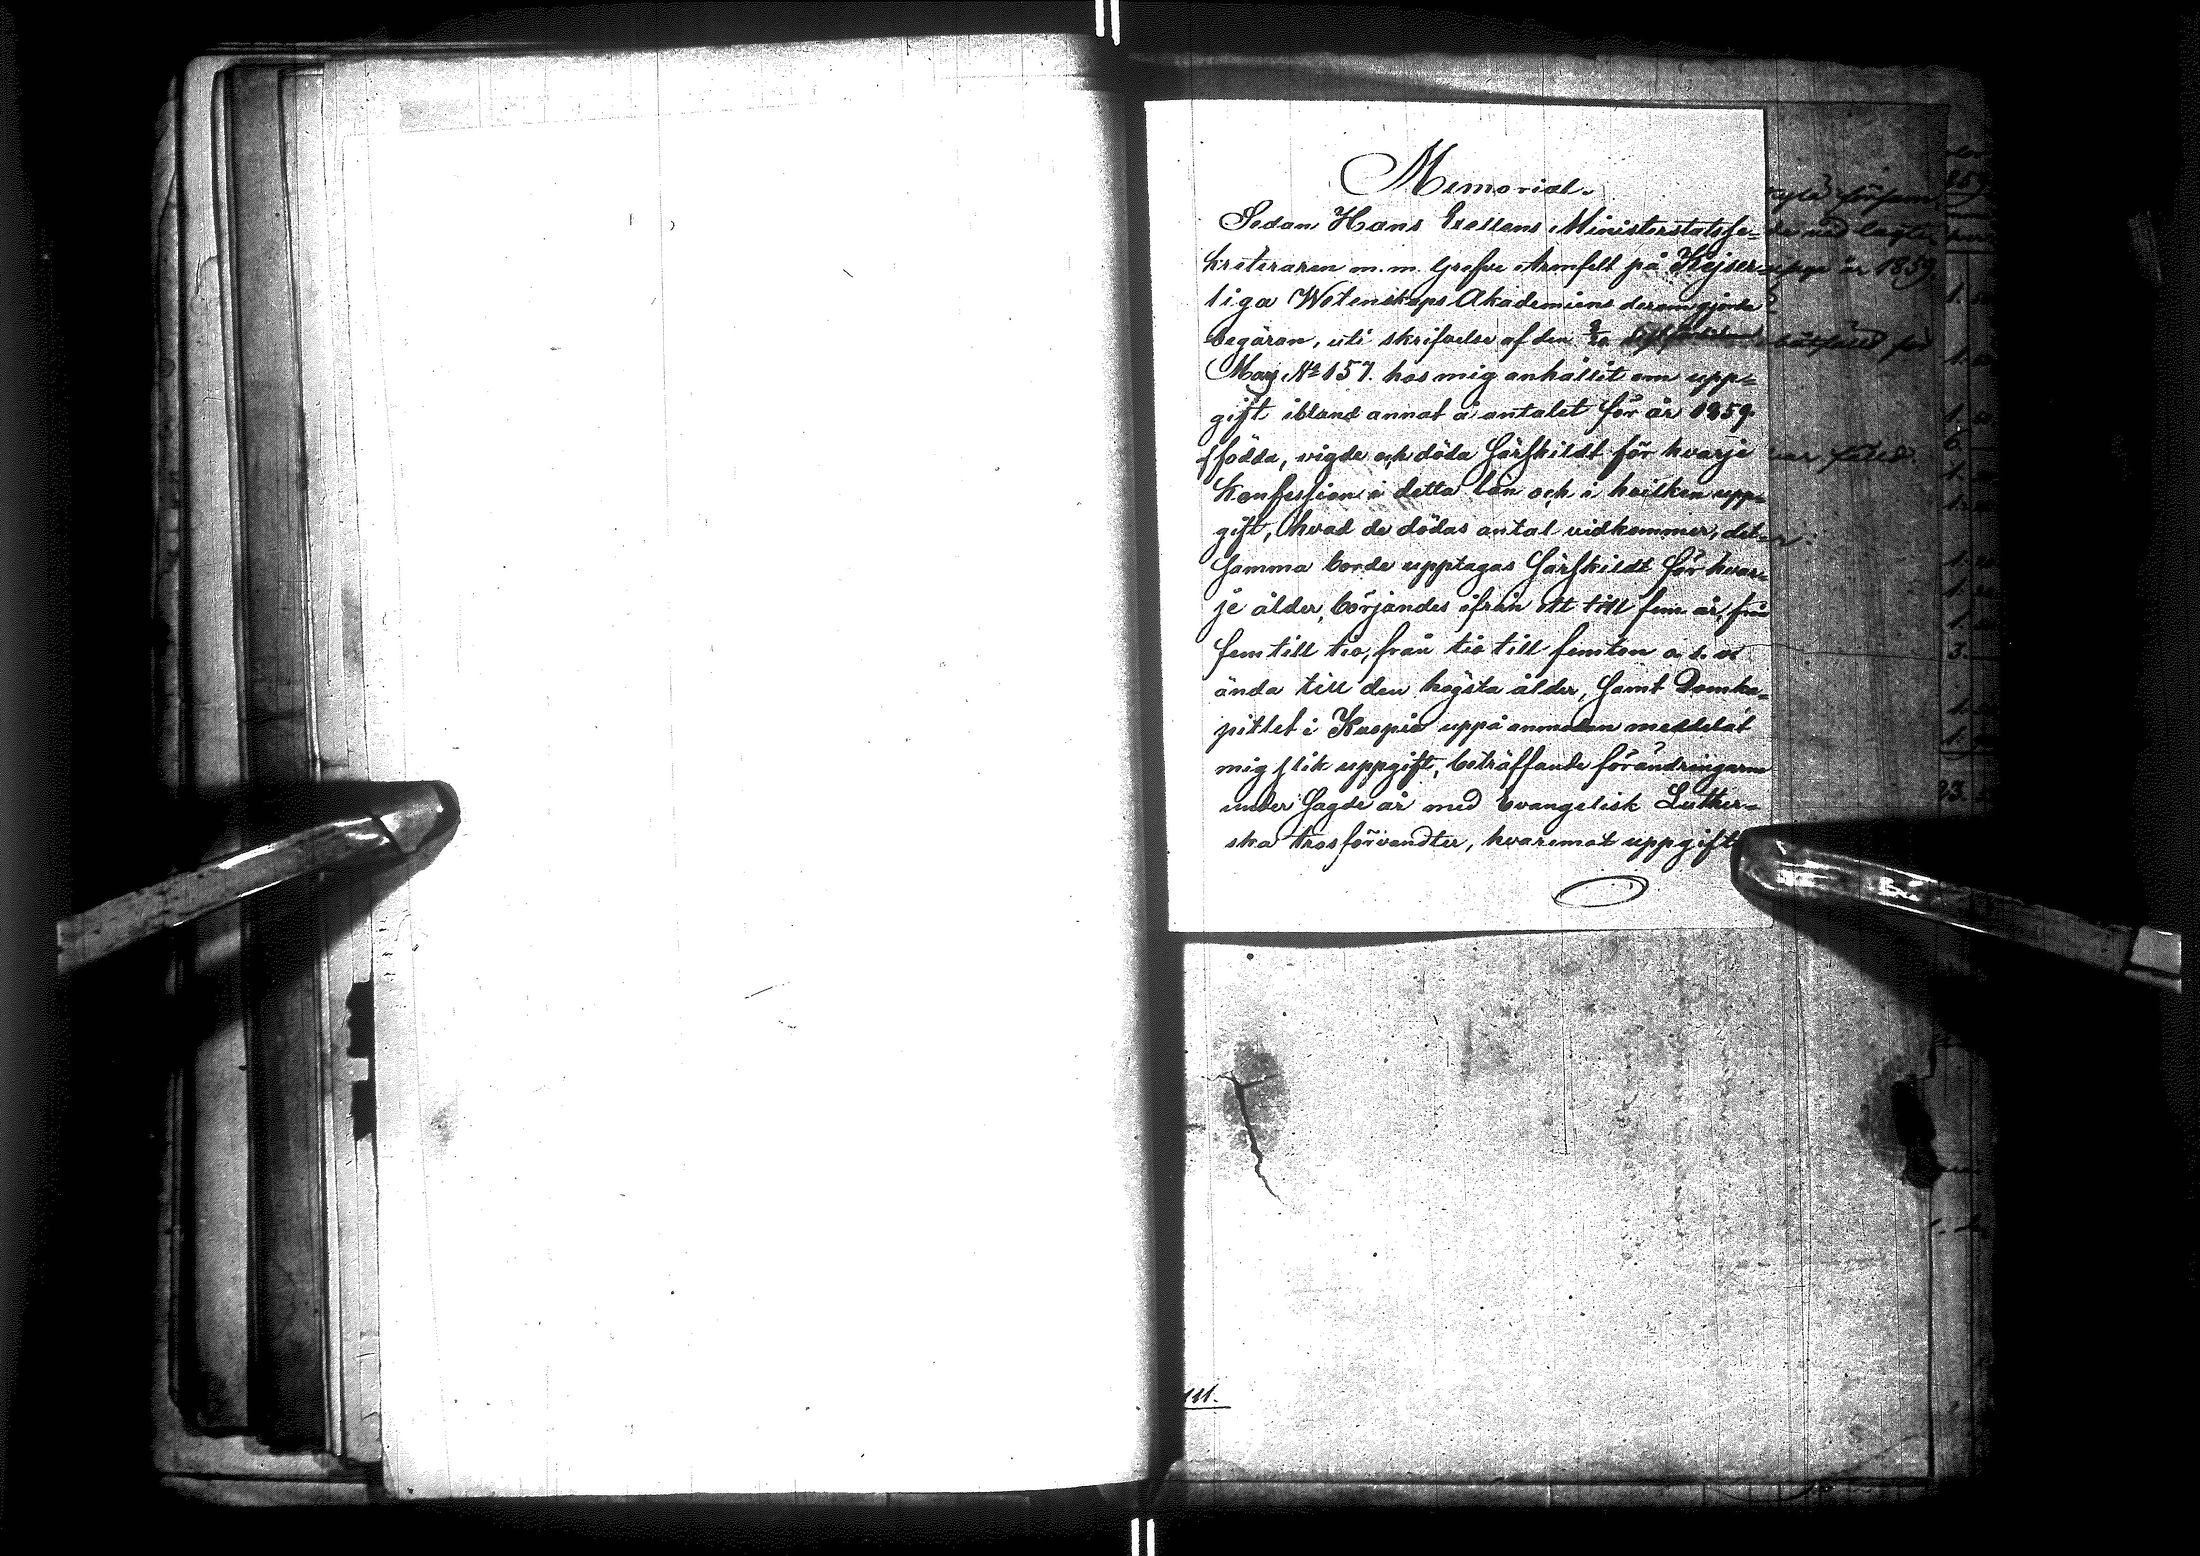 Memorial.
Sedan Hans Exellens Ministerstatsse-
kreteraren m.m. Grefve Armfelt på Kejser-
liga Wetenskaps Akademiens derom gjorde
begäran, uti skrifvelse af den
Maj № 157. hos mig anhållit om upp-
gift ibland annat å antalet för år 1859
födda, vigde och döda särskildt för hvarje
Konfession i detta län och i hvilken upp-
gift, hvad de dödas antal vidkommer, det-
samma borde upptagas särskildt för hvar-
je ålder, börjandes ifrån ett till fem år, från
fem till tio, från tio till femton o.s.v.
ända till den högsta ålder, samt Domka-
pitlet i Kuopio uppå anmodan meddelat
mig slik uppgift, beträffande förändringarne
under sagde år med Evangelisk Luther-
ska trosförvandter, hvaremot uppgift
är 1859.